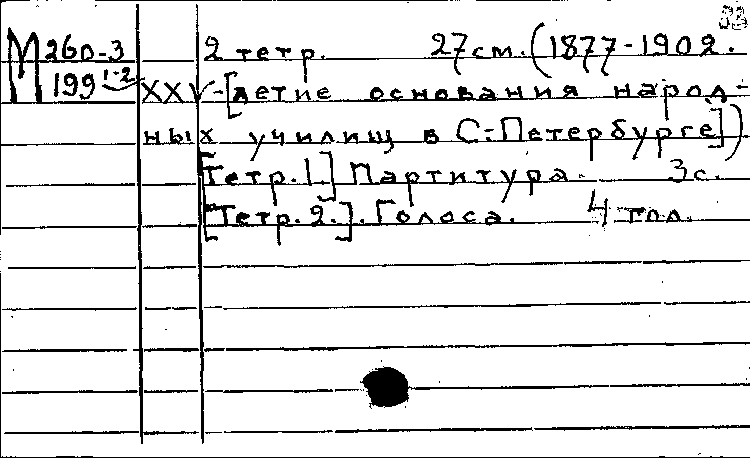 М 260-3 2 тетр. 27 см. (1877-1902.
199 1-2 XXV-[летие основания народ-
ных училищ в С-Петербурге])
[Тетр. 1.] Партитура. 3 с.
[Тетр. 2.]. Голоса. 4 гол.